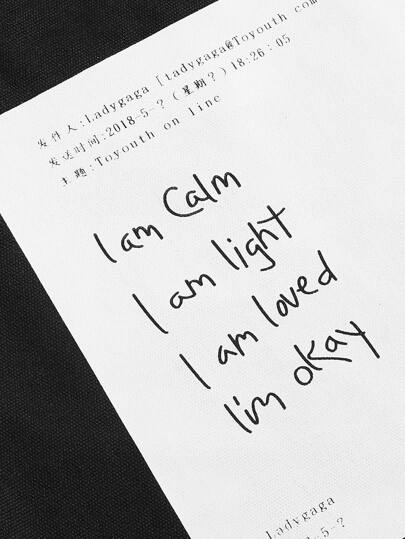 发件人:Ladygaga [tadygaga@Toyouth com
发送时间:2018-5-?（星期?）18:26:05
主题:Toyouth on line
I am Calm
I am light
I am loved
I'm okay
Ladygaga
-5-?